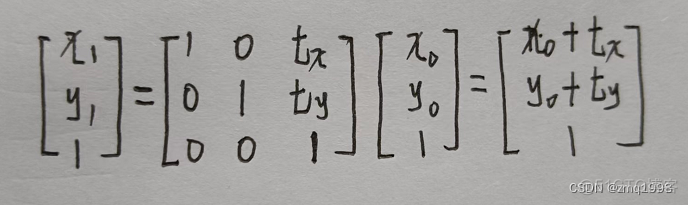 [x₁ y₁ 1] = [1 0 tx; 0 1 ty; 0 0 1] [x₀ y₀ 1] = [x₀+tx y₀+ty 1]
CSDN @zmq1998